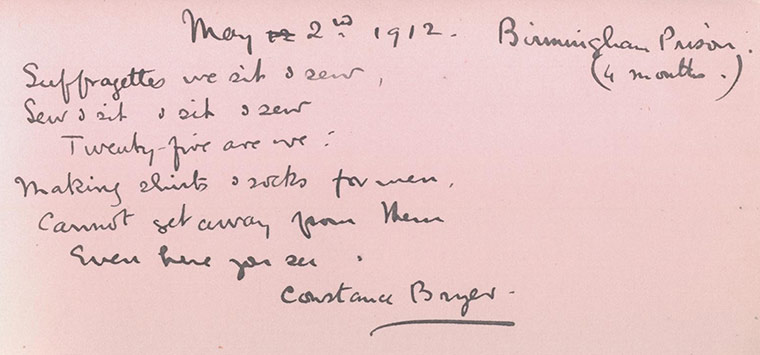 May 2nd 1912. Birmingham Prison.
(4 months.)
Suffragettes we sit & sew,
Sew & sit & sit & sew
Twenty-five are we:
Making shirts & socks for men,
Cannot get away from them
Even here you see.
Constance Bryer.